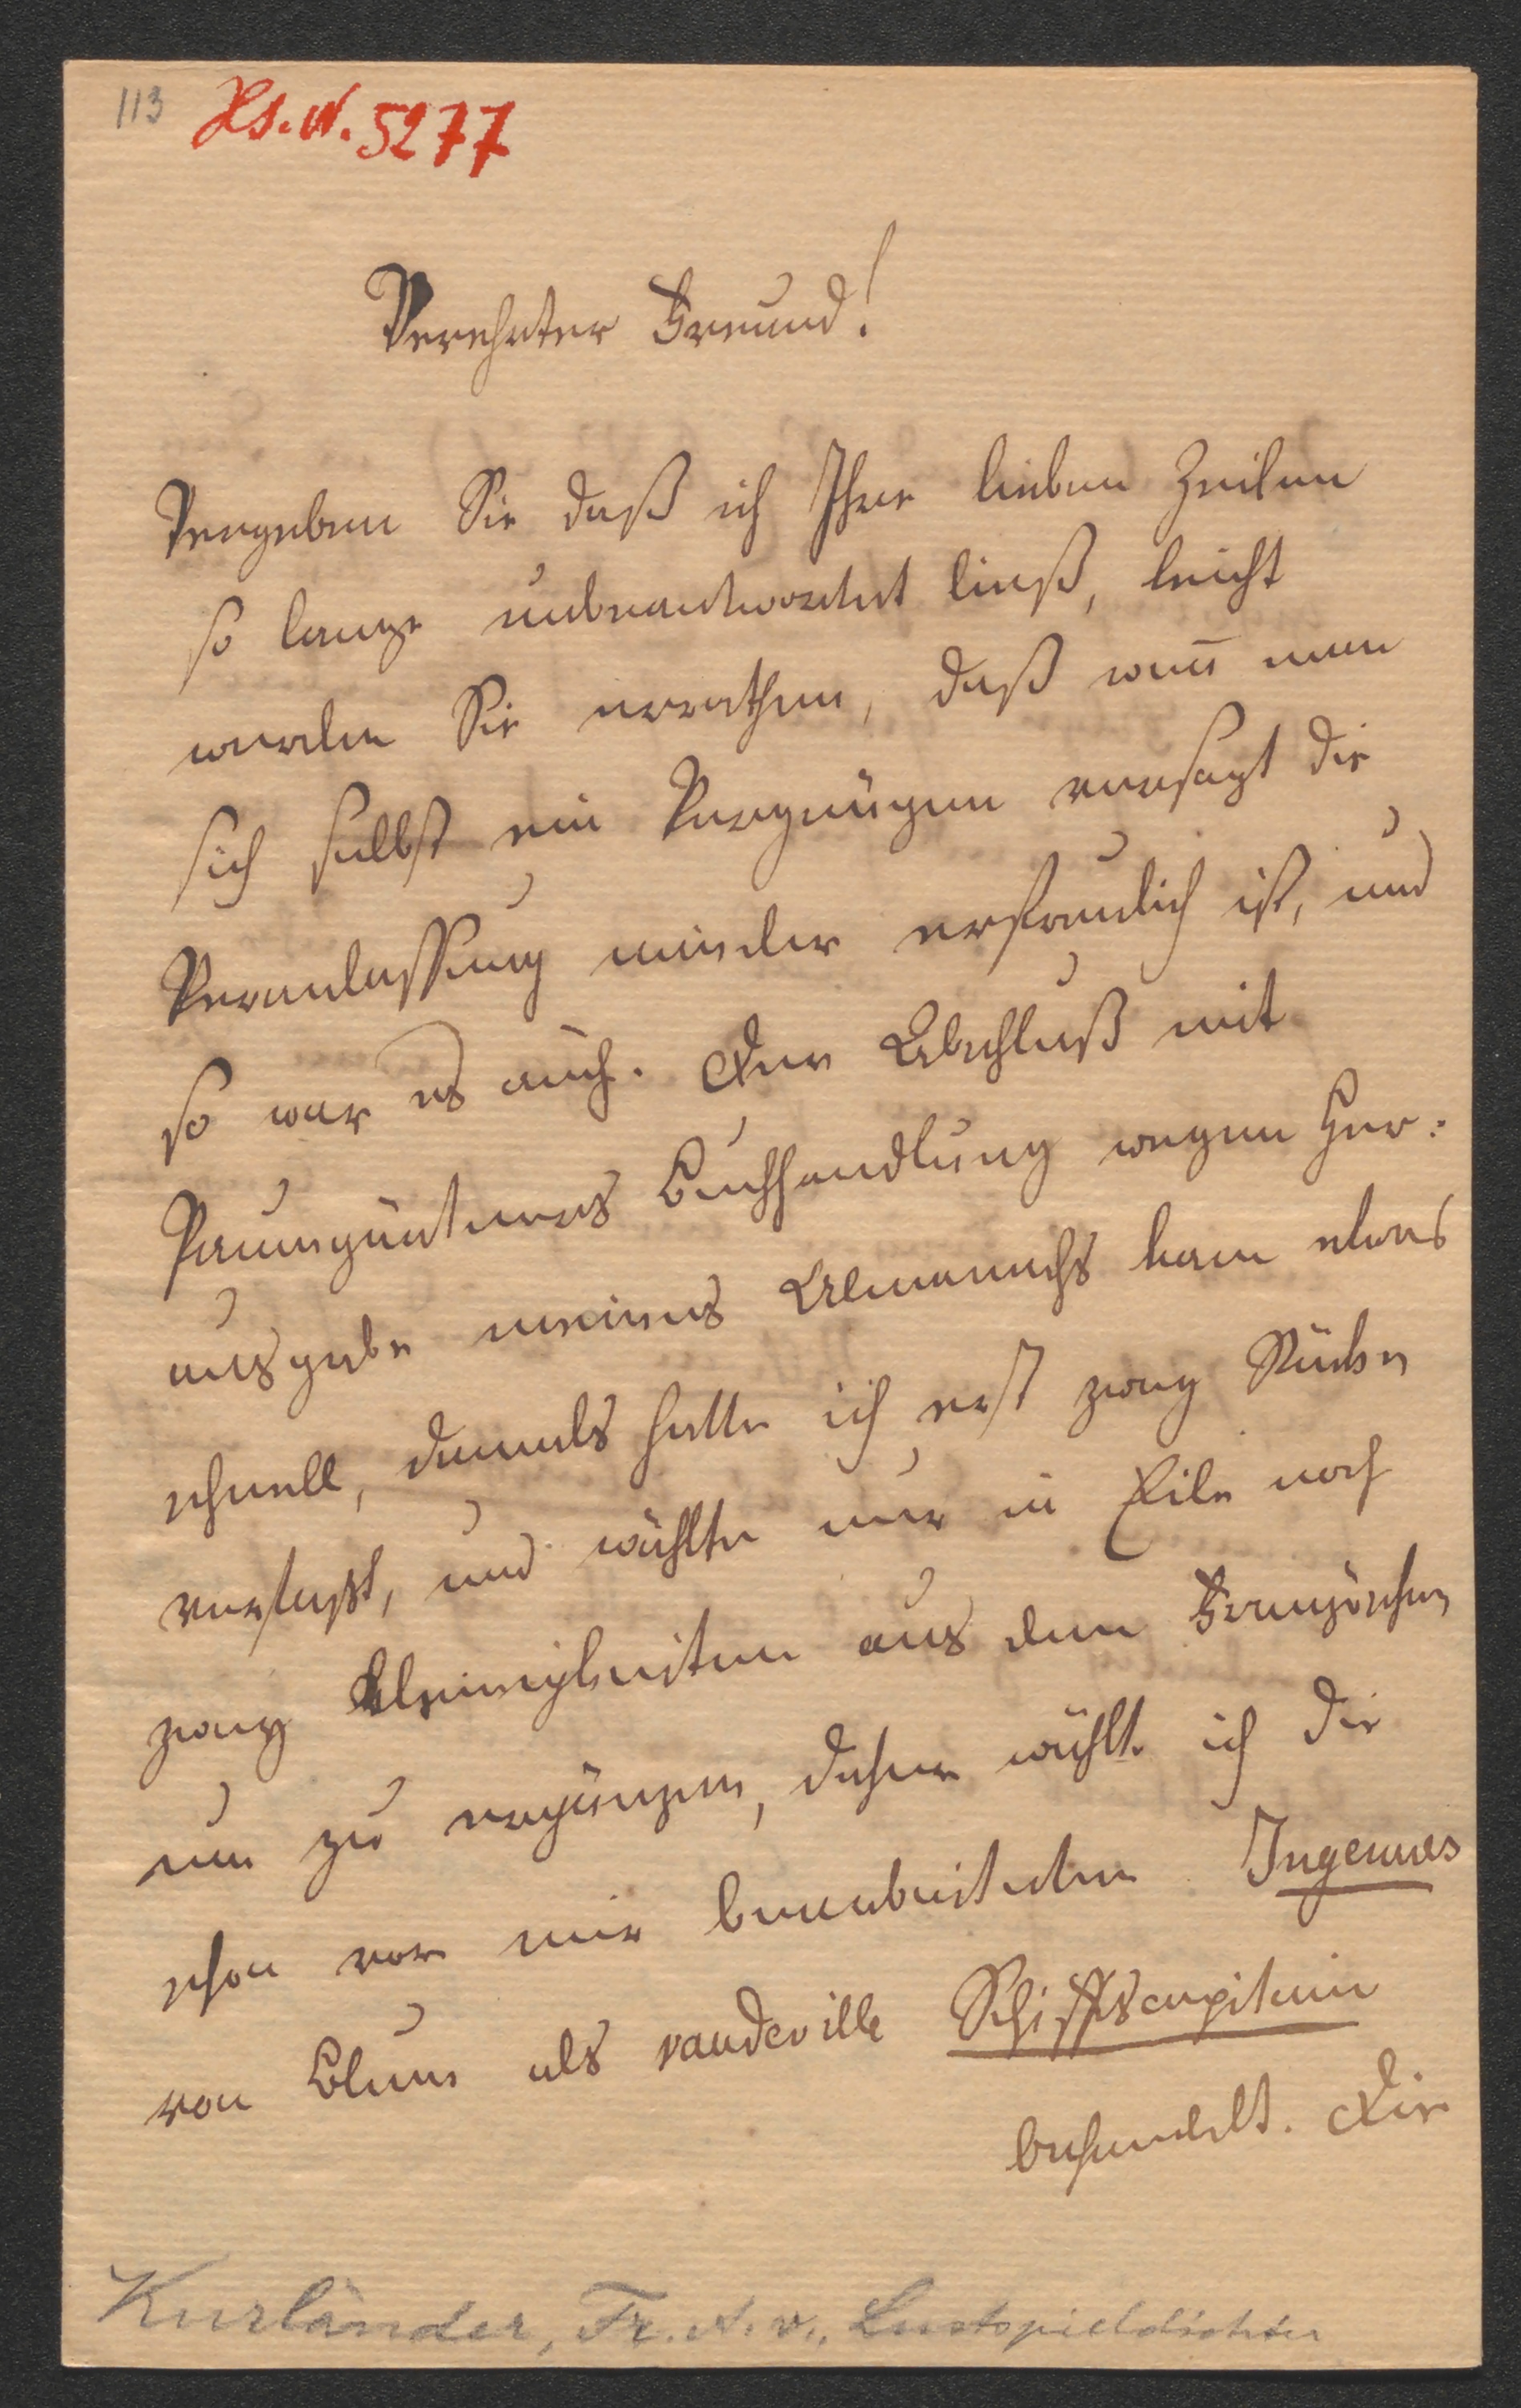 113 Hs. N. 5277
Verehrter Freund!
Vergeben Sie daß ich Ihre lieben Zeilen
so lange unbeantwortet ließ, leicht
werden Sie errathen, daß weñ man
sich selbst ein Vergnügen versagt die
Veranlassung minder erfreulich ist, und
so war es auch. Der Abschluß mit
Baumgärtners Buchhandlung wegen Her=
ausgabe meines Almanachs kam etwas
schnell, damals hatte ich erst zwey Stücke
verfaßt, und wählte nur in Eile noch
zwey Kleinigkeiten aus dem Französchen
um zu ergänzen, daher wählt ich die
schon vor mir bearbeiteten Ingenues
von Blum als vaudeville Schiffscapitain
behandelt. Die
Kurländer, Fr. A. v., Lustspieldichter